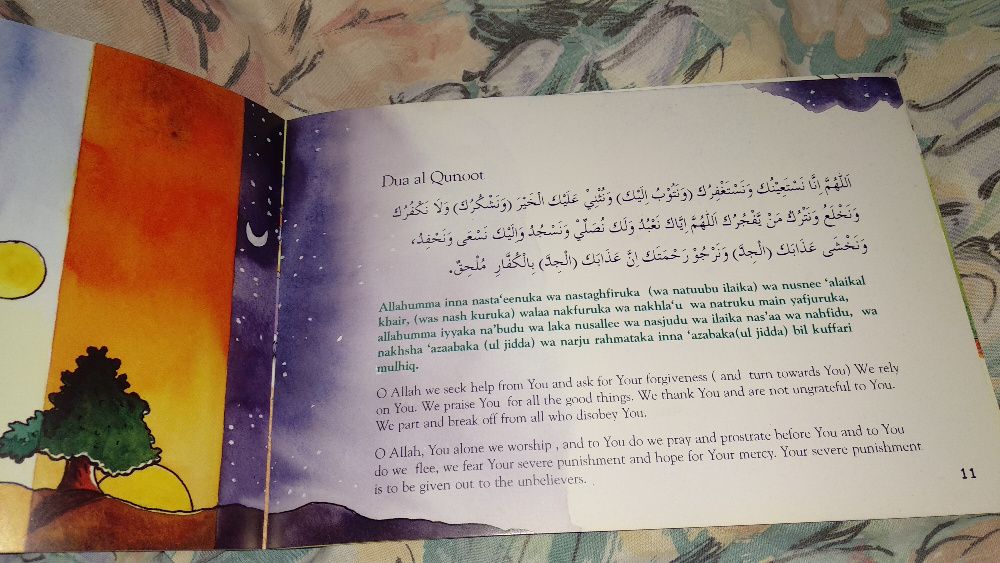 Dua al Qunoot
اَللّٰهُمَّ اِنَّا نَسْتَعِيْنُكَ وَنَسْتَغْفِرُكَ (وَنَتُوْبُ اِلَيْكَ) وَنُثْنِيْ عَلَيْكَ الْخَيْرَ (وَنَشْكُرُكَ) وَلَا نَكْفُرُكَ
وَنَخْلَعُ وَنَتْرُكُ مَنْ يَّفْجُرُكَ اَللّٰهُمَّ اِيَّاكَ نَعْبُدُ وَلَكَ نُصَلِّيْ وَنَسْجُدُ وَاِلَيْكَ نَسْعٰى وَنَحْفِدُ،
وَنَخْشٰى عَذَابَكَ (الْجِدَّ) وَنَرْجُوْ رَحْمَتَكَ اِنَّ عَذَابَكَ (الْجِدَّ) بِالْكُفَّارِ مُلْحِقٌ.
Allahumma inna nasta‘eenuka wa nastaghfiruka (wa natuubu ilaika) wa nusnee ‘alaikal
khair, (was nash kuruka) walaa nakfuruka wa nakhla‘u wa natruku main yafjuruka,
allahumma iyyaka na’budu wa laka nusallee wa nasjudu wa ilaika nas’aa wa nahfidu, wa
nakhsha ‘azaabaka (ul jidda) wa narju rahmataka inna ‘azabaka(ul jidda) bil kuffari
mulhiq.
O Allah we seek help from You and ask for Your forgiveness ( and turn towards You) We rely
on You. We praise You for all the good things. We thank You and are not ungrateful to You.
We part and break off from all who disobey You.
O Allah, You alone we worship , and to You do we pray and prostrate before You and to You
do we flee, we fear Your severe punishment and hope for Your mercy. Your severe punishment
is to be given out to the unbelievers. .
11